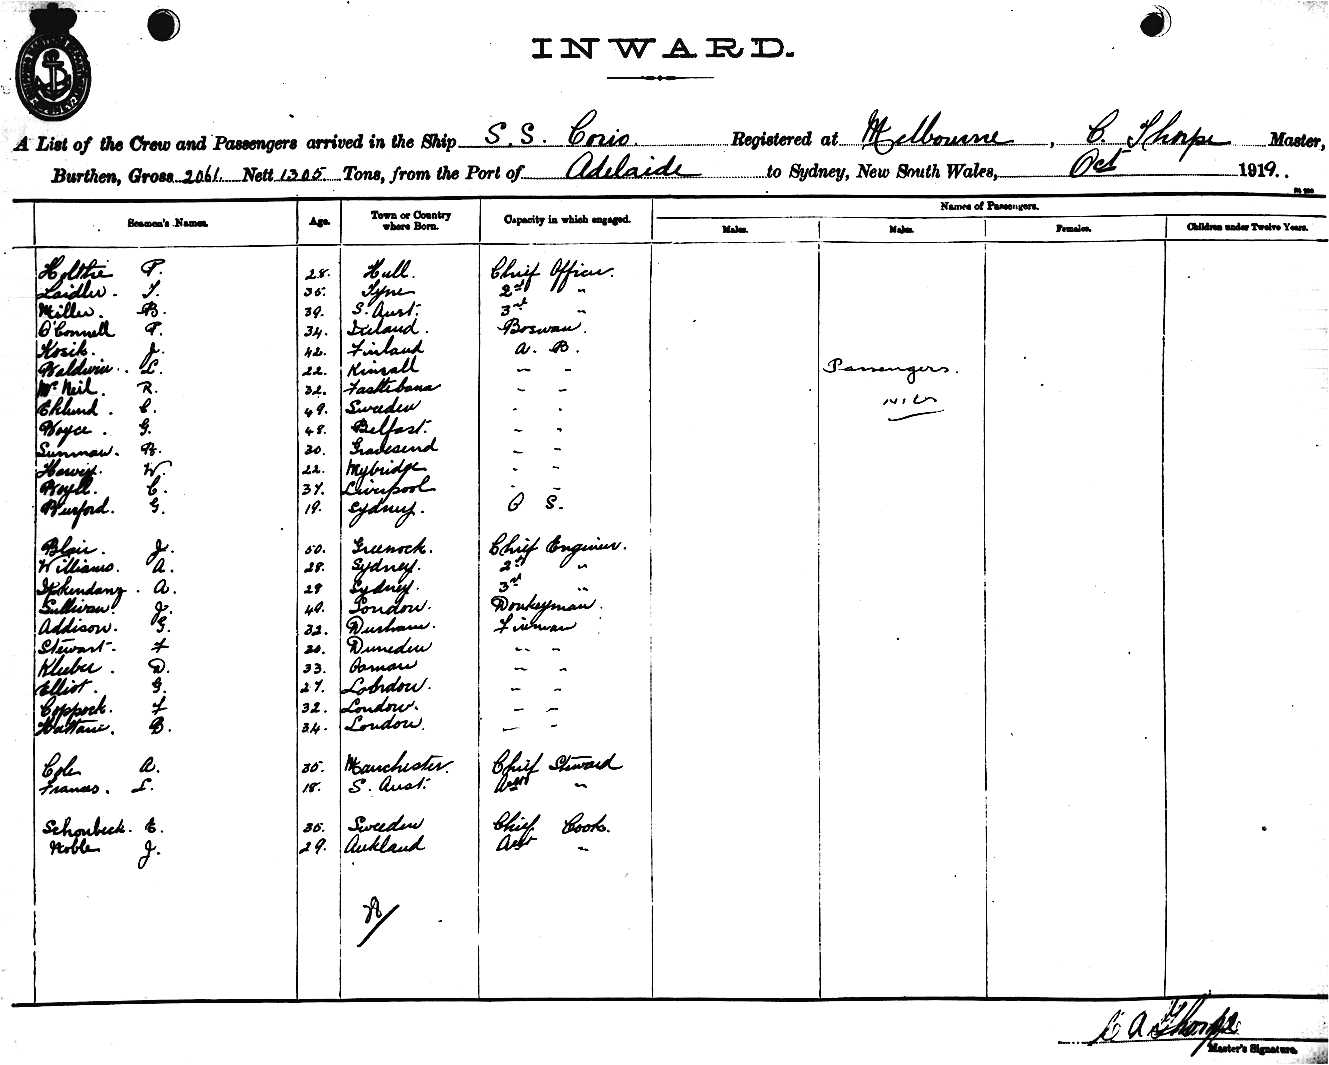 INWARD.
A List of the Crew and Passengers arrived in the Ship S.S. Corio Registered at Melbourne, C. Thorpe Master,
Burthen, Gross 2061 Nett 1305 Tons, from the Port of Adelaide to Sydney, New South Wales, Oct 1919.
Seamen's Names. Age. Town or Country where Born. Capacity in which engaged. Names of Passengers.
Males. Males. Females. Children under Twelve Years.
P. 28. Hull. Chief Officer.
Laidler. T. 35. Tyne 2nd "
Miller. B. 39. S. Aust. 3rd "
O'Connell P. 34. Ireland. Boswan.
Kosik. J. 42. Finland A. B.
Baldwin. L. 22. Kinsall " "
McNeil. R. 32. " "
Eklund. C. 49. Sweden " "
Boyce. G. 48. Belfast. " "
Summan. B. 30. Gravesend " "
W. 22. Mybridge " "
Boyll. C. 37. Liverpool " "
Burford. G. 19. Sydney. O S.
Passengers.
Nil
Blair. J. 50. Greenock. Chief Engineer.
Williams. A. 28. Sydney. 2nd "
A. 29 Sydney. 3rd "
Sullivan. J. 49. London. Donkeyman.
Addison. G. 32. Durham. Fireman
Stewart. F 30. Dunedin " "
Klieber. D. 33. " "
Elliot. G. 27. London. " "
Coppock. F 32. London. " "
B. 34. London. " "
Cole A. 35. Manchester. Chief Steward
Frances. L. 18. S. Aust. Asst "
Schonbeck. E. 35. Sweden Chief Cook.
Noble J. 29. Aukland Asst "
C A Thorpe
Master's Signature.